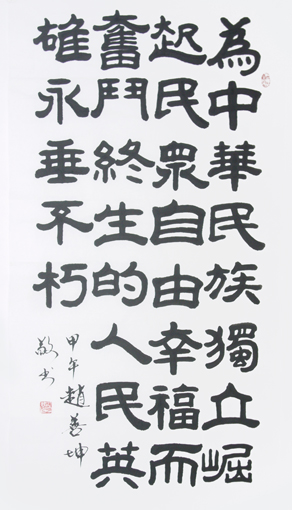 為中華民族獨立崛
起民眾自由幸福而
奮鬥終生的人民英
雄永垂不朽
甲午趙善坤
敬书